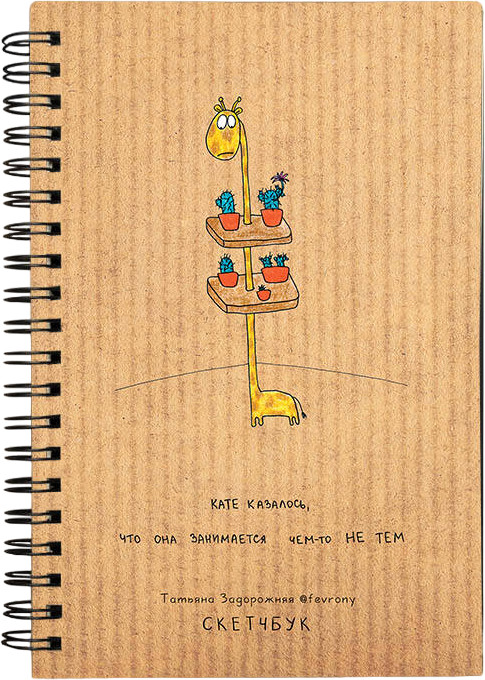 КАТЕ КАЗАЛОСЬ,
ЧТО ОНА ЗАНИМАЕТСЯ ЧЕМ-ТО НЕ ТЕМ
Татьяна Задорожняя @fevrony
СКЕТЧБУК